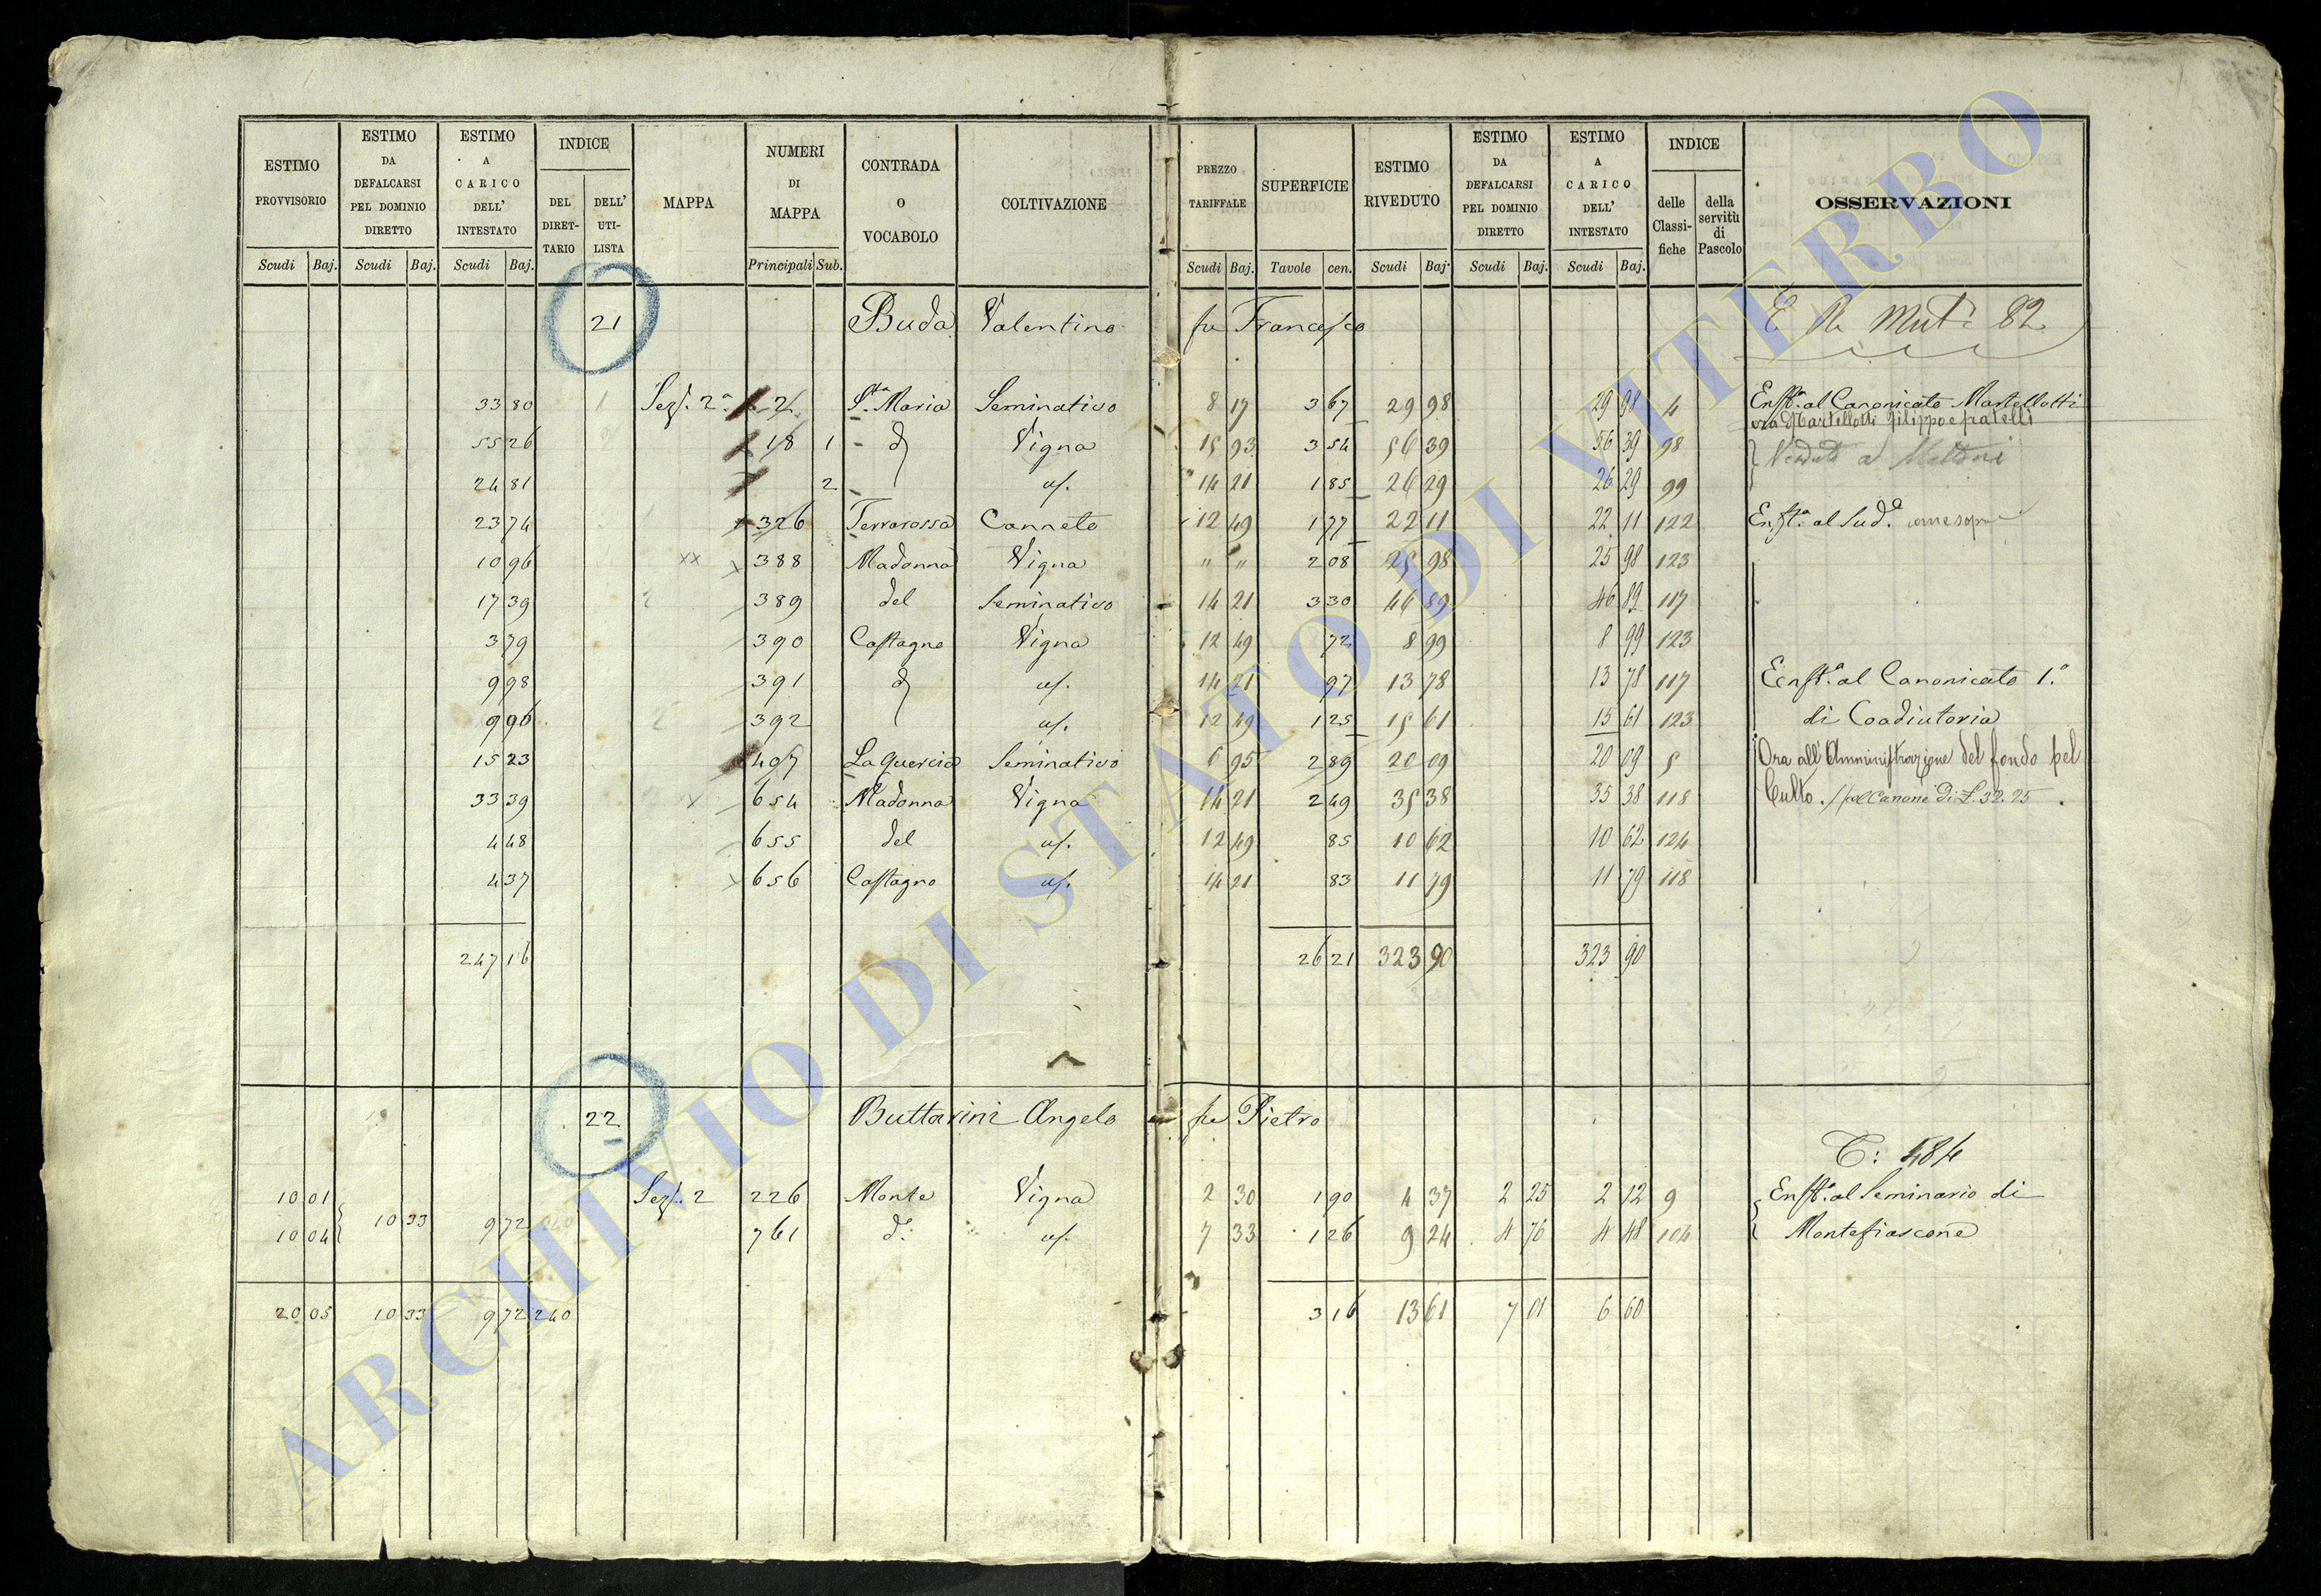 ESTIMO PROVVISORIO | ESTIMO DA DEFALCARSI PEL DOMINIO DIRETTO | ESTIMO A CARICO DELL' INTESTATO | INDICE DEL DIRET-TARIO | DELL' UTI-LISTA | MAPPA | NUMERI DI MAPPA | CONTRADA O VOCABOLO | COLTIVAZIONE | PREZZO TARIFFALE | SUPERFICIE | ESTIMO RIVEDUTO | ESTIMO DA DEFALCARSI PEL DOMINIO DIRETTO | ESTIMO A CARICO DELL' INTESTATO | INDICE delle Classi-fiche | della servitù di Pascolo | OSSERVAZIONI
Scudi Baj. Scudi Baj. Scudi Baj. Principali Sub. Scudi Baj. Tavole cen. Scudi Baj. Scudi Baj. Scudi Baj.
21 Buda Valentino fu Francesco 82
33 80 Sez. 2a 2 Sta Maria Seminativo 8 17 3 67 29 98 29 98 4 Enfta al Canonicato Martellotti
ora Martellotti Filippo e fratelli
55 26 18 1 d Vigna 15 93 3 54 56 39 56 39 98 Venduto a
24 81 2 us. 14 21 1 85 26 29 26 29 99
23 74 326 Terrarossa Canneto 12 49 1 77 22 11 22 11 122 Enfta al Sudo come sopra
10 96 xx 388 Madonna Vigna " " 2 08 25 98 25 98 123
17 39 389 del Seminativo 14 21 3 30 46 89 46 89 117
3 79 390 Castagno Vigna 12 49 72 8 99 8 99 123
9 98 391 d us. 14 21 97 13 78 13 78 117 Enfta al Canonicato 1o
9 96 392 us. 12 49 1 25 15 61 15 61 123 di Coadiutoria
15 23 407 La Quercia Seminativo 6 95 2 89 20 09 20 09 5 Ora all'Amministrazione del fondo pel
33 39 654 Madonna Vigna 14 21 2 49 35 38 35 38 118 Culto. pel Canone di L. 32.25
4 48 655 del us. 12 49 85 10 62 10 62 124
4 37 656 Castagno us. 14 21 83 11 79 11 79 118
247 16 26 21 323 90 323 90
22 Buttarini Angelo fu Pietro
C: 484
10 01 Sez. 2 226 Monte Vigna 2 30 1 90 4 37 2 25 2 12 9 Enfta al Seminario di
10 04 10 33 9 72 761 do us. 7 33 1 26 9 24 4 76 4 48 104 Montefiascone
20 05 10 33 9 72 240 3 16 13 61 7 01 6 60
ARCHIVIO DI STATO DI VITERBO